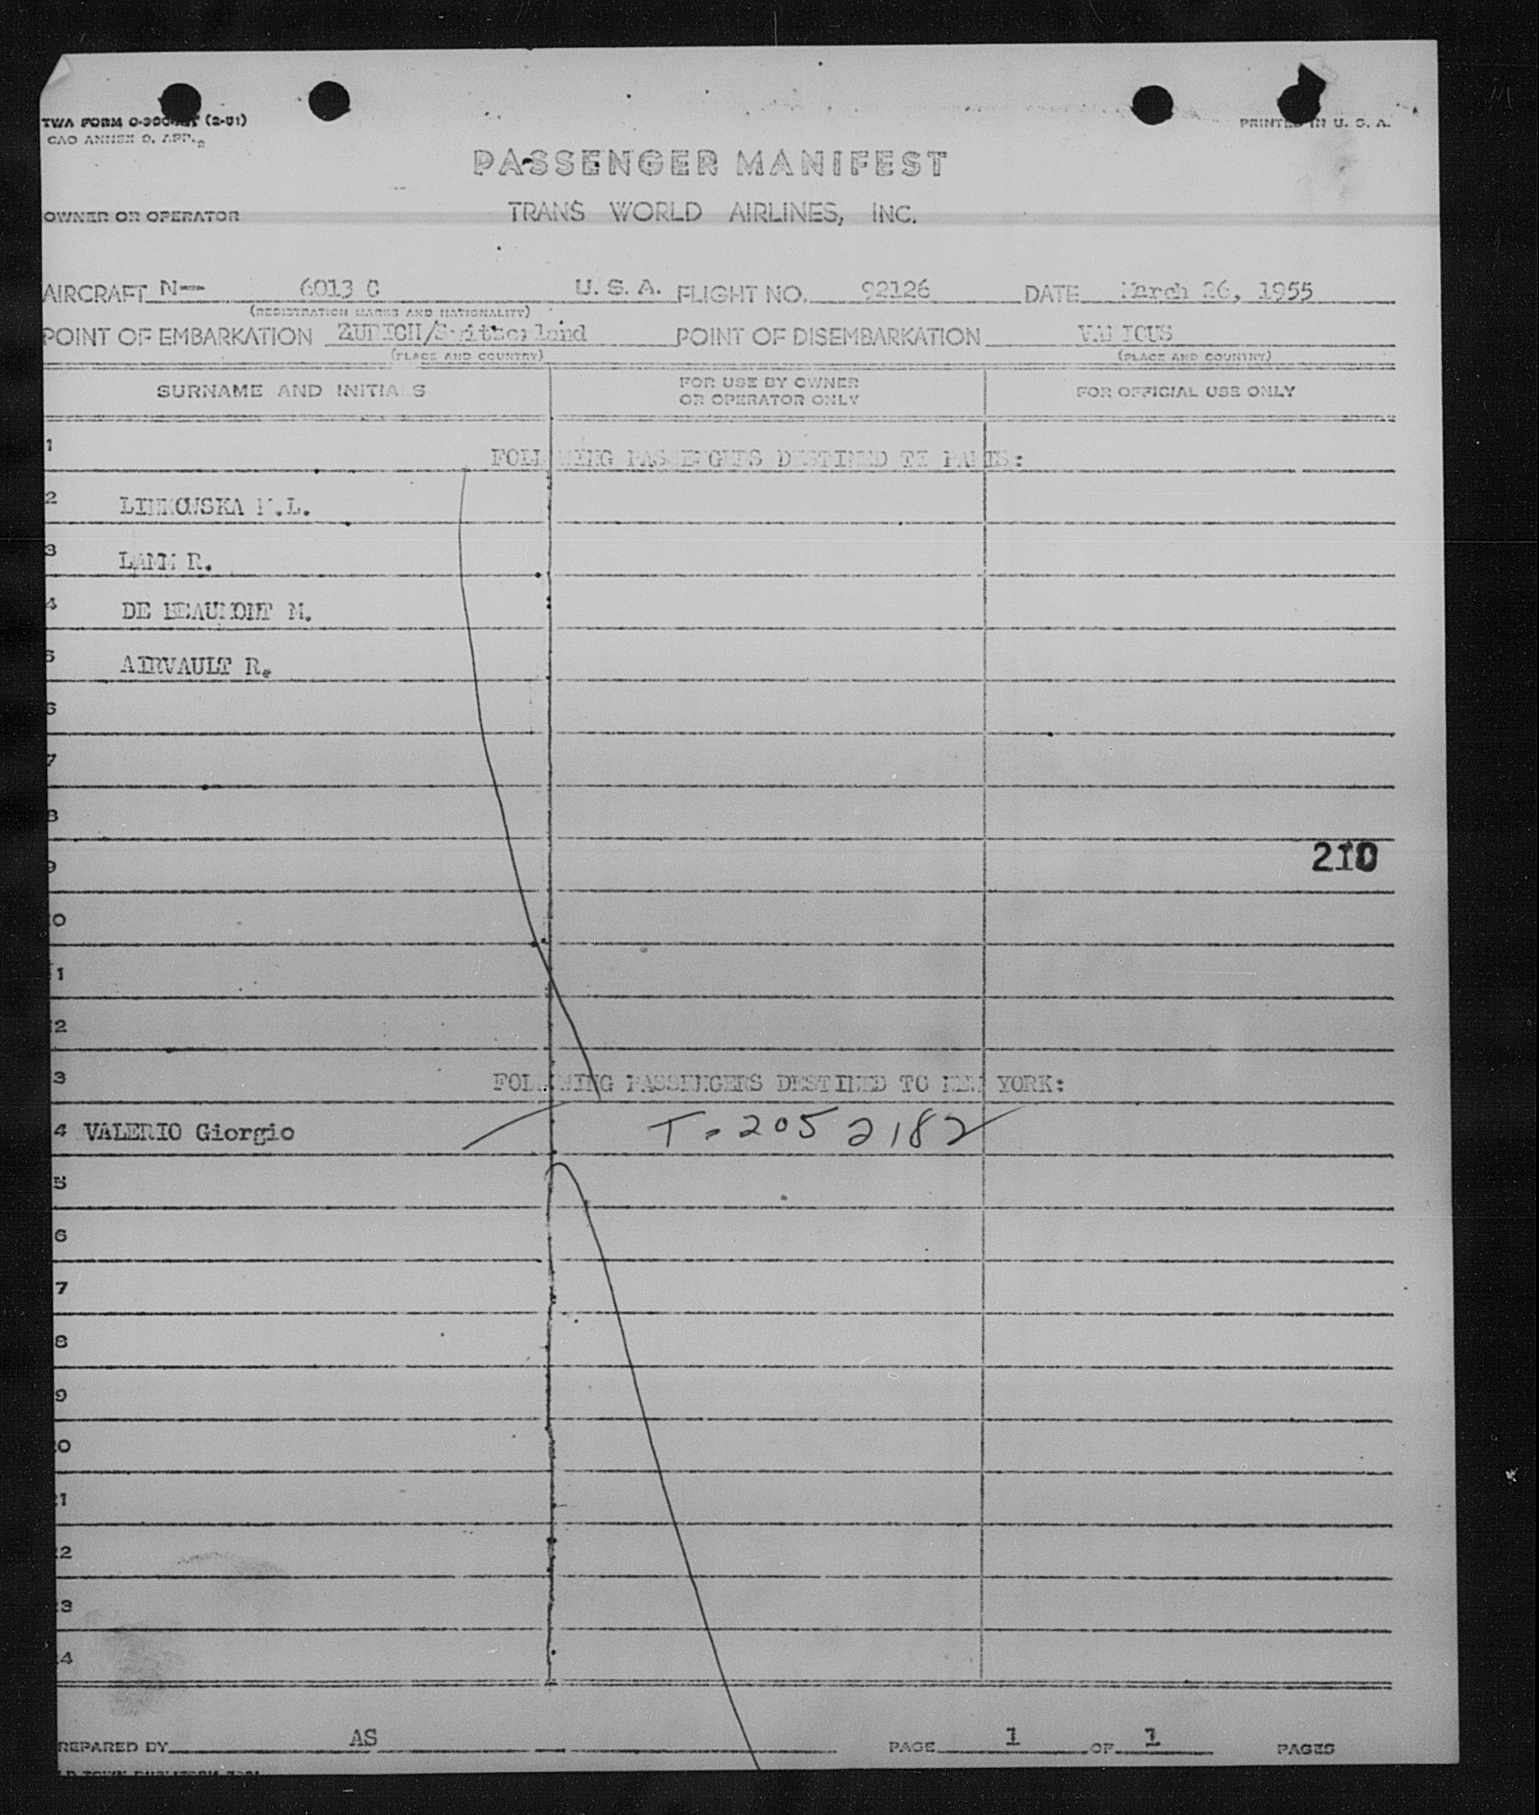 TWA FORM (2-51)
PRINTED IN U. S. A.
PASSENGER MANIFEST
OWNER OR OPERATOR TRANS WORLD AIRLINES, INC.
AIRCRAFT N-- 6013 C U. S. A. FLIGHT NO. 92126 DATE March 26, 1955
(REGISTRATION MARKS AND NATIONALITY)
POINT OF EMBARKATION ZURICH/Switzerland POINT OF DISEMBARKATION VARIOUS
(PLACE AND COUNTRY) (PLACE AND COUNTRY)
SURNAME AND INITIALS FOR USE BY OWNER OR OPERATOR ONLY FOR OFFICIAL USE ONLY
1 FOLLOWING PASSENGERS DESTINED TO PARIS:
2 M.L.
3 LAMM R.
4 DE BEAUMONT M.
5 AIRVAULT R.
6
7
8
210
9
0
1
2
3 FOLLOWING PASSENGERS DESTINED TO NEW YORK:
4 VALERIO Giorgio T-2052182
5
6
7
8
9
0
1
2
3
4
REPARED BY AS PAGE 1 OF 1 PAGES